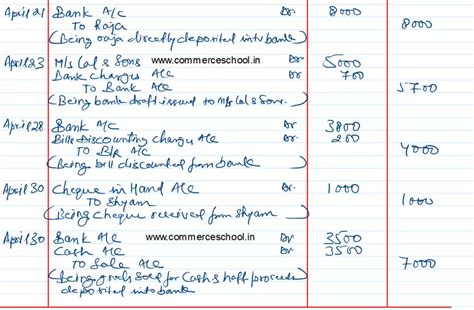 April 21 Bank A/C Dr 8000
To Raja 8000
(Being raja directly deposited into bank)
April 23 M/s Lal & Sons www.commerceschool.in Dr 5000
Bank Charges A/C Dr 700
To Bank A/C 5700
(Being bank draft issued to M/s Lal & Sons.
April 28 Bank A/C Dr 3800
Bills Discounting Charges A/C Dr 200
To B/R A/C 4000
(Being bill discounted from bank
April 30 Cheque in Hand A/C Dr. 1000
To Shyam 1000
(Being cheque received from Shyam
April 30 Bank A/C www.commerceschool.in Dr 3500
Cash A/C Dr 3500
To Sale A/C 7000
(Being goods sold for Cash & half proceeds
deposited into bank